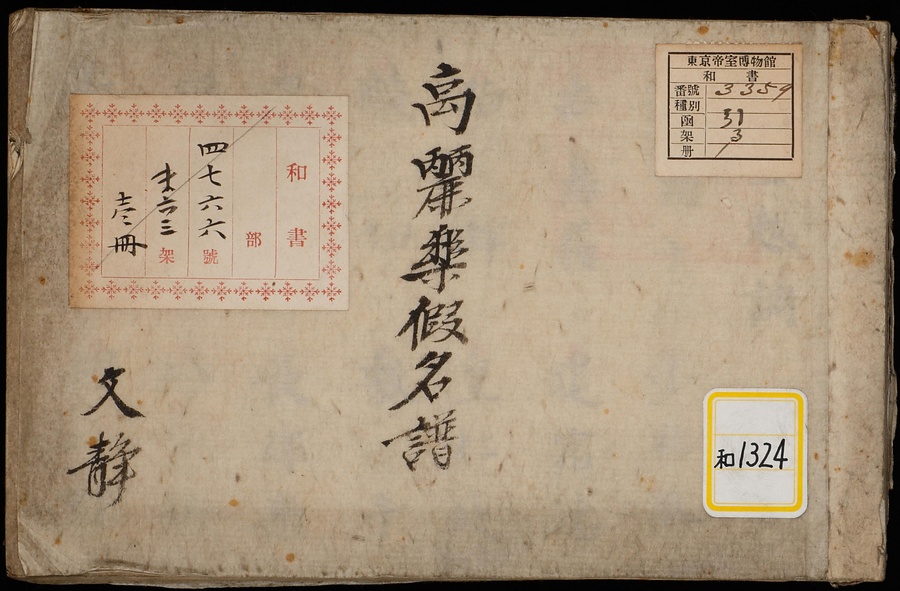 東京帝室博物館
和書
番號 3359
種別
函 31
架 3
册 1
高麗樂假名譜
和書
部
四七六六號
六三架
壱冊
文靜
和1324